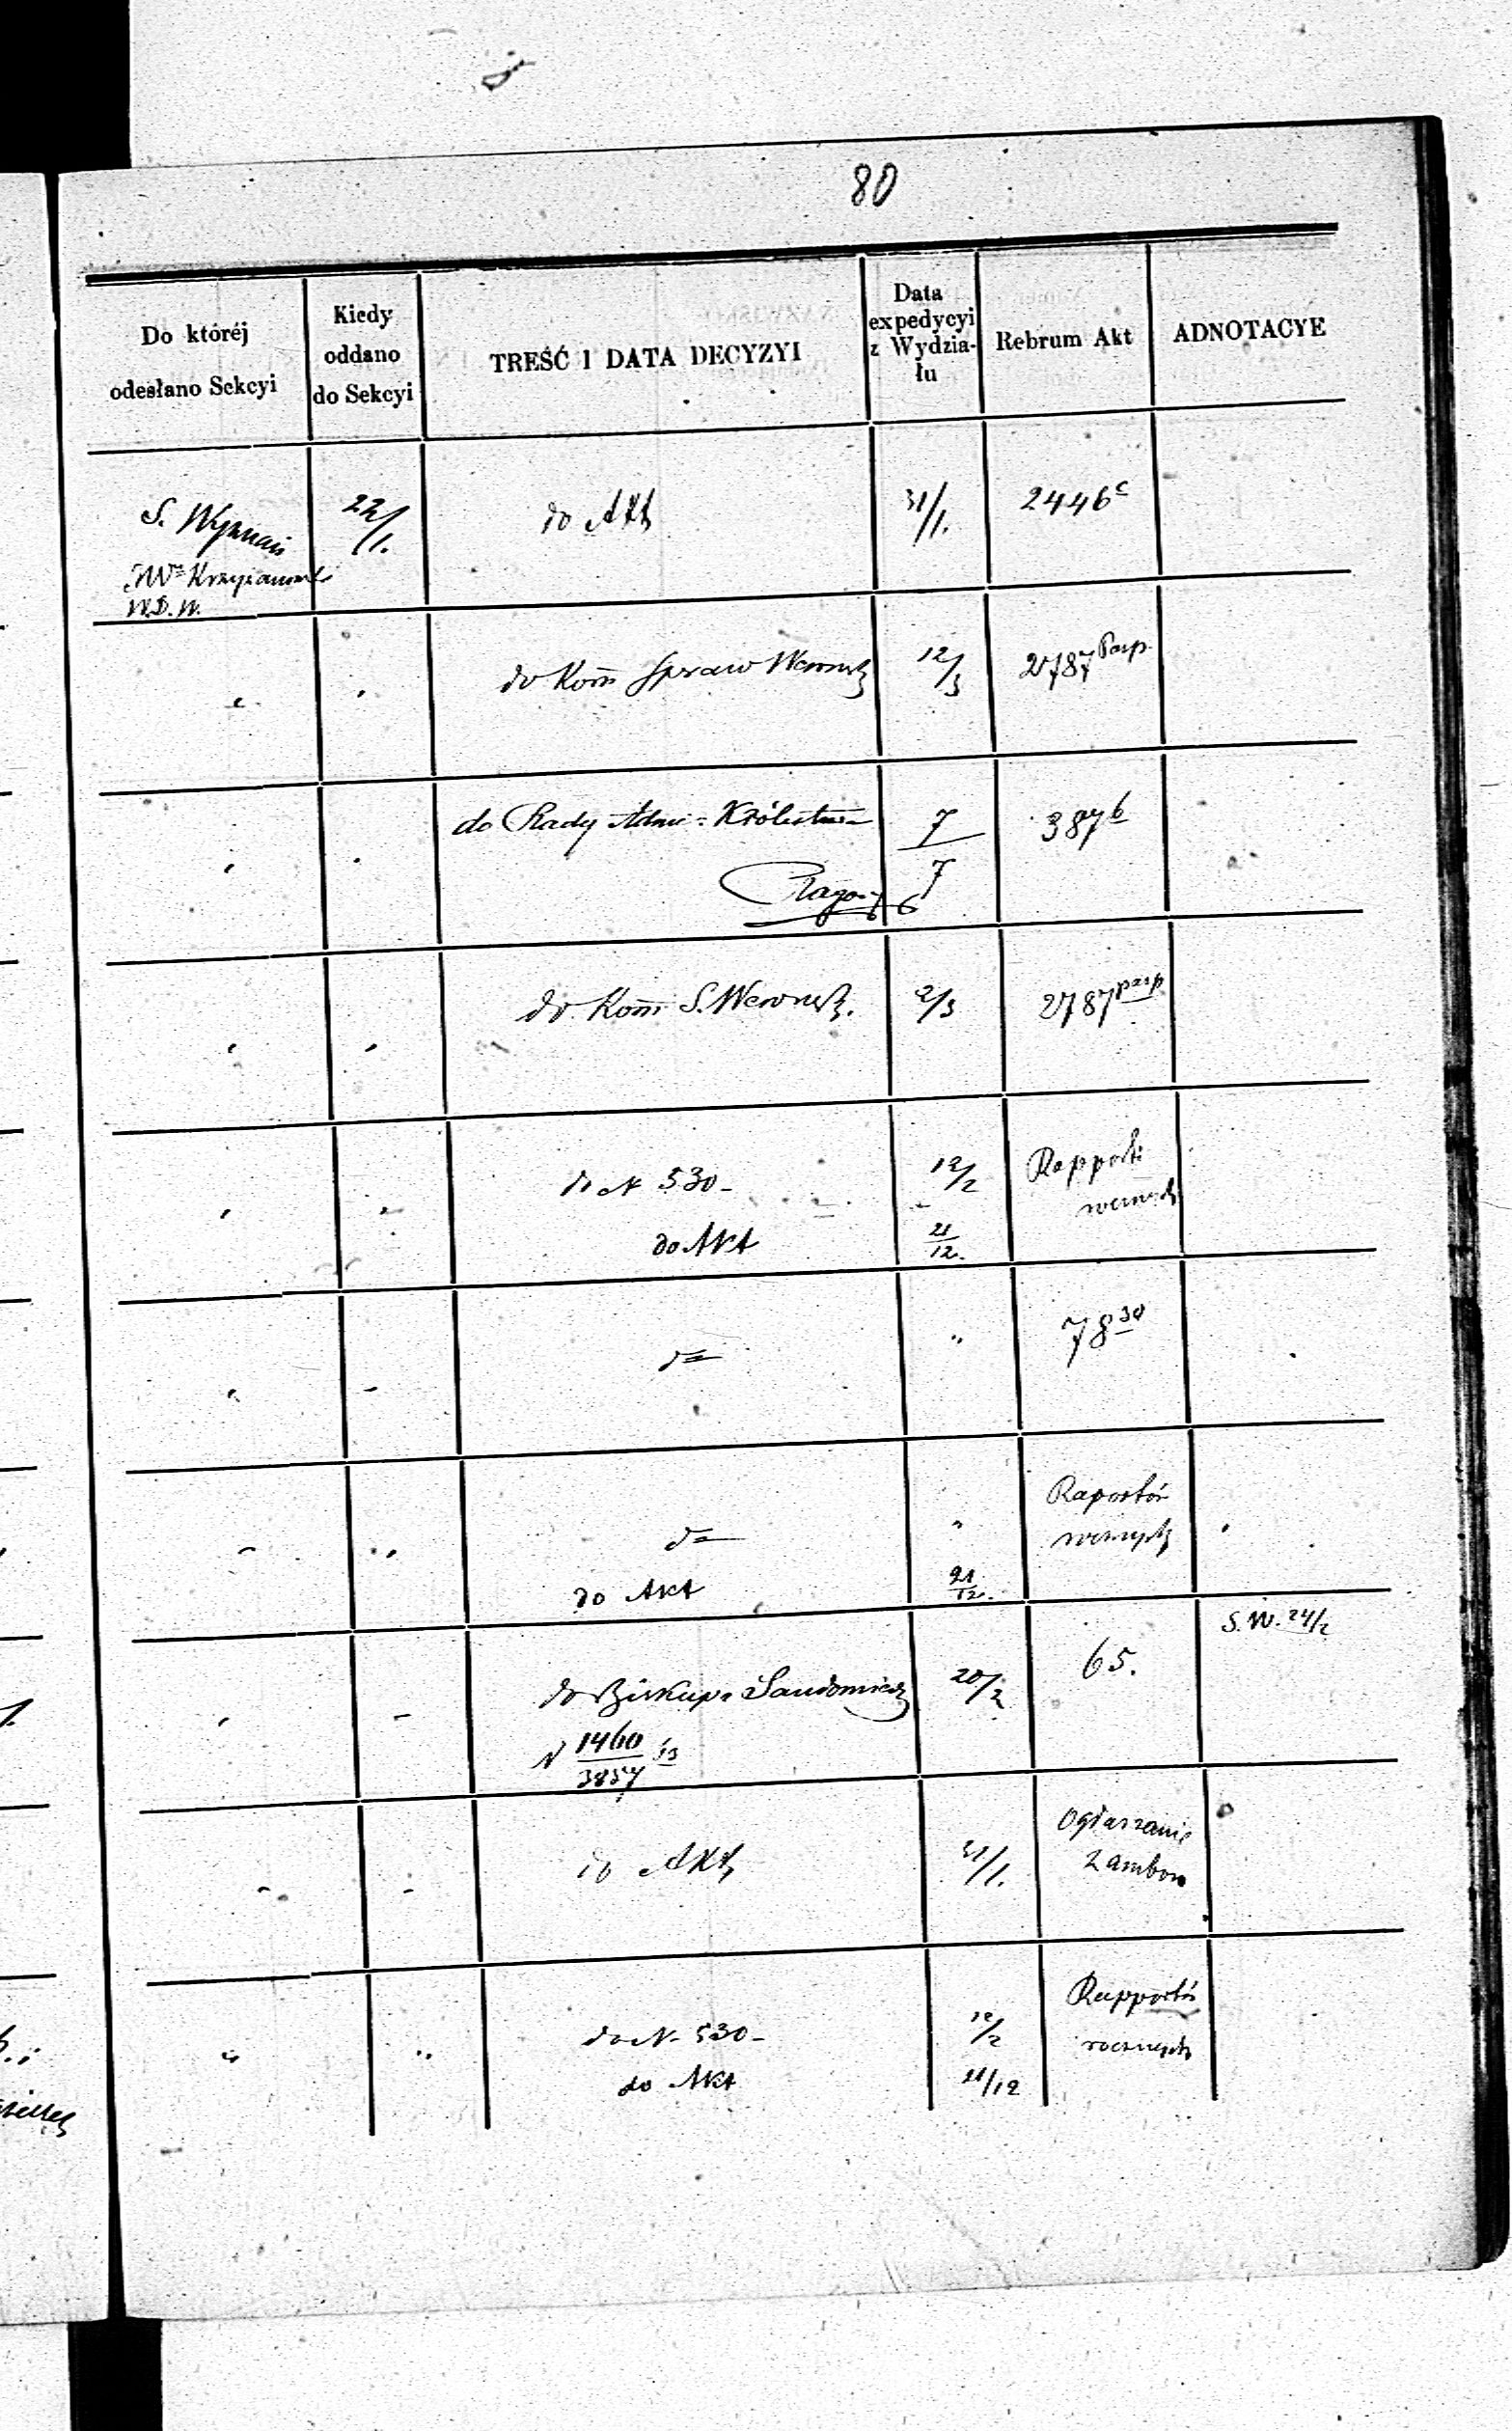 80
Do któréj odesłano Sekcyi
Kiedy oddano do Sekcyi
TREŚĆ I DATA DECYZYI
Data expedycyi z Wydzia-łu
Rebrum Akt
ADNOTACYE
S. Wyznań 22/1. do Akt 31/1. 2446c
W.D.W.
do Kom Spraw Wewnętz 12/3 2787 Pasp.
do Rady Adm: Królestwa 7 387b
7
6
do Kom S. Wewnętz. 2/3 2787 pasp
do N 530- 12/2 Rapport
do Akt 21/12.
do " 78 30
do " Raportów
rocznych
do Akt 21/12.
S.W. 24/2
do Biskupa Sandomierz 20/2 65.
N 1460/3857
do Akt 31/1. Ogłaszanie
z ambon
do N- 530- 12/2 Rapportów
rocznych
do Akt 21/12